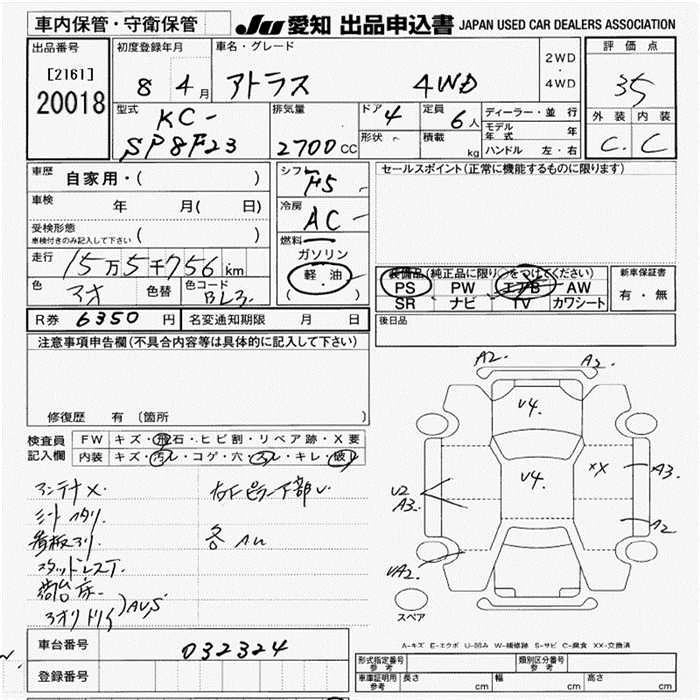 車内保管・守衛保管
JU 愛知 出品申込書 JAPAN USED CAR DEALERS ASSOCIATION
出品番号
[2161]
20018
初度登録年月
8 4 月
車名・グレード
アトラス 4WD
2WD
・
4WD
評価点
3.5
外装 内装
C. C
型式
KC-
SP8F23
排気量
2700 CC
ドア 4
形状
定員 6 人
積載 kg
ディーラー・並行
モデル年式 年
ハンドル 左・右
車歴 自家用・( )
車検 年 月( 日)
受検形態
車検付きのみ記入して下さい ( )
走行 15万5千756 km
色 アオ 色替 色コード BL3
シフト F5
冷房 AC
燃料
ガソリン
軽・油
( )
セールスポイント(正常に機能するものに限ります)
装備品(純正品に限り○をつけてください)
PS PW エアB AW
SR ナビ TV カワシート
新車保証書
有・無
R券 6350 円 名変通知期限 月 日
後日品
注意事項申告欄(不具合内容等は具体的に記入して下さい)
修復歴 有 (箇所
検査員
記入欄
FW キズ・飛石・ヒビ割・リペア跡・X要
内装 キズ・汚レ・コゲ・穴・スレ・キレ・破レ
アンテナX.
シートヘタリ
看板アリ
スタッドレスT.
荷台床-
各
A2. A2.
V4.
V4.
XX
A3.
U2
A3.
A2
UA2.
スペア
A-キズ E-エクボ U-凹み W-補修跡 S-サビ C-腐食 XX-交換済
車台番号 032324
登録番号
形式指定番号
参考
類別区分番号
参考
車庫証明用
参考
長さ cm 幅 cm 高さ cm